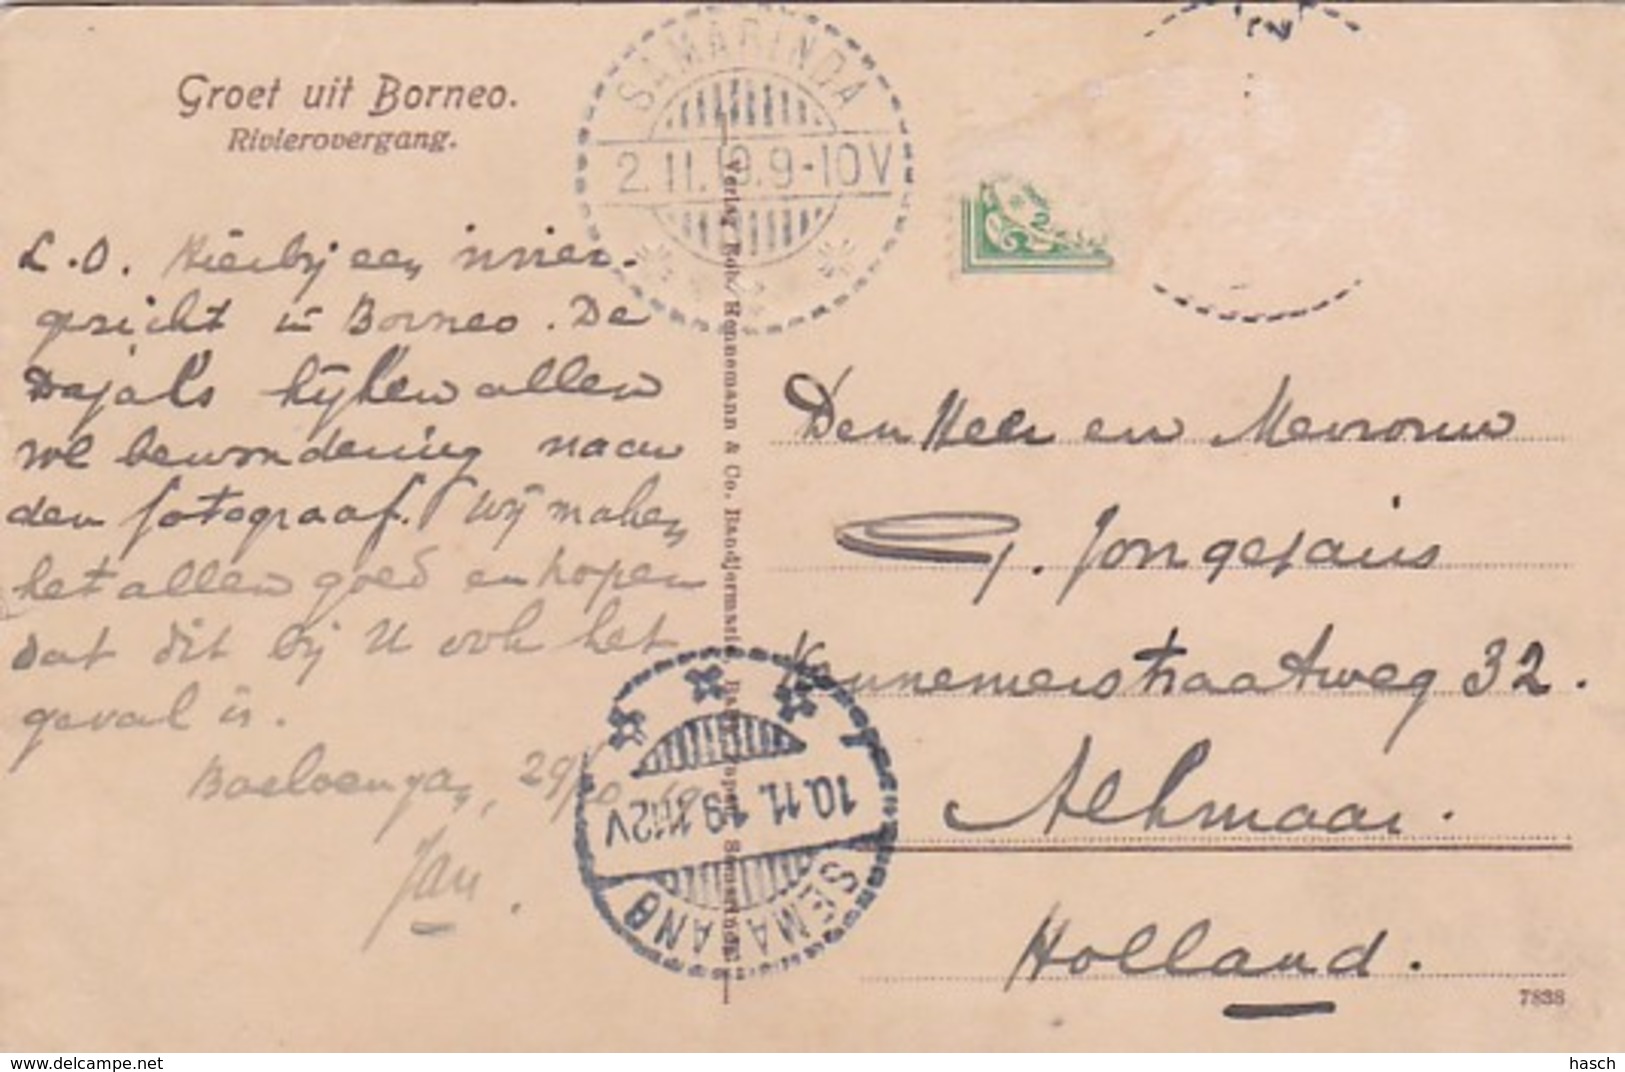 Groet uit Borneo.
Rivierovergang.
SAMARINDA
2.11.19.9-10V
L.O. Hierbij een rivier-
gezicht in Borneo. De
Dajaks kijken allen
vol bewondering naar
den fotograaf. Wij maken
het allen goed en hopen
dat dit bij U ook het
geval is.
29/10 19
Jan.
Verlag Rob. Hennemann & Co. Bandjermasin
10.11.19.11-12V
SEMARANG
Den Heer en Mevrouw
G. Jongejans
Kennemerstraatweg 32.
Alkmaar.
Holland.
7838
www.delcampe.net
hasch